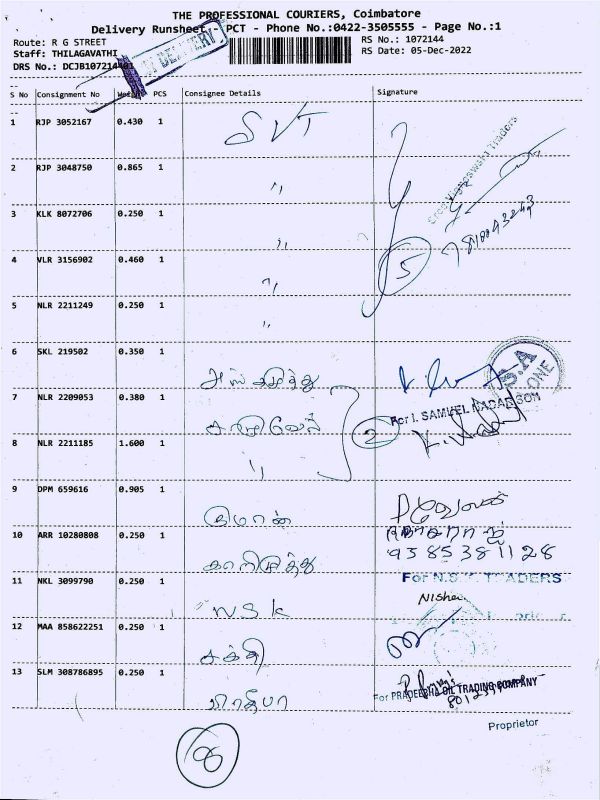 THE PROFESSIONAL COURIERS, Coimbatore
Delivery Runsheet - PCT - Phone No.:0422-3505555 - Page No.:1
Route: R G STREET
RS No.: 1072144
Staff: THILAGAVATHI
RS Date: 05-Dec-2022
DRS No.: DCJB107214401
DELIVERY
S No Consignment No Weight PCS Consignee Details Signature
1 RJP 3052167 0.430 1 SVT
2 RJP 3048750 0.865 1 "
Sree Vigneswara Traders
3 KLK 8072706 0.250 1 "
4 VLR 3156902 0.460 1 "
5
5 NLR 2211249 0.250 1 "
6 SKL 219502 0.350 1
S.A
ONE
7 NLR 2209053 0.380 1
For I. SAMUEL NADAR SON
2
8 NLR 2211185 1.600 1 "
9 DPM 659616 0.905 1
10 ARR 10280808 0.250 1 காளிமுத்து
9385381128
11 NKL 3099790 0.250 1 NSK
For N.S.K TRADERS
Nisha
12 MAA 858622251 0.250 1 சக்தி
13 SLM 308786895 0.250 1 பிரதீபா
For PRADEEBHA OIL TRADING COMPANY
Proprietor
8